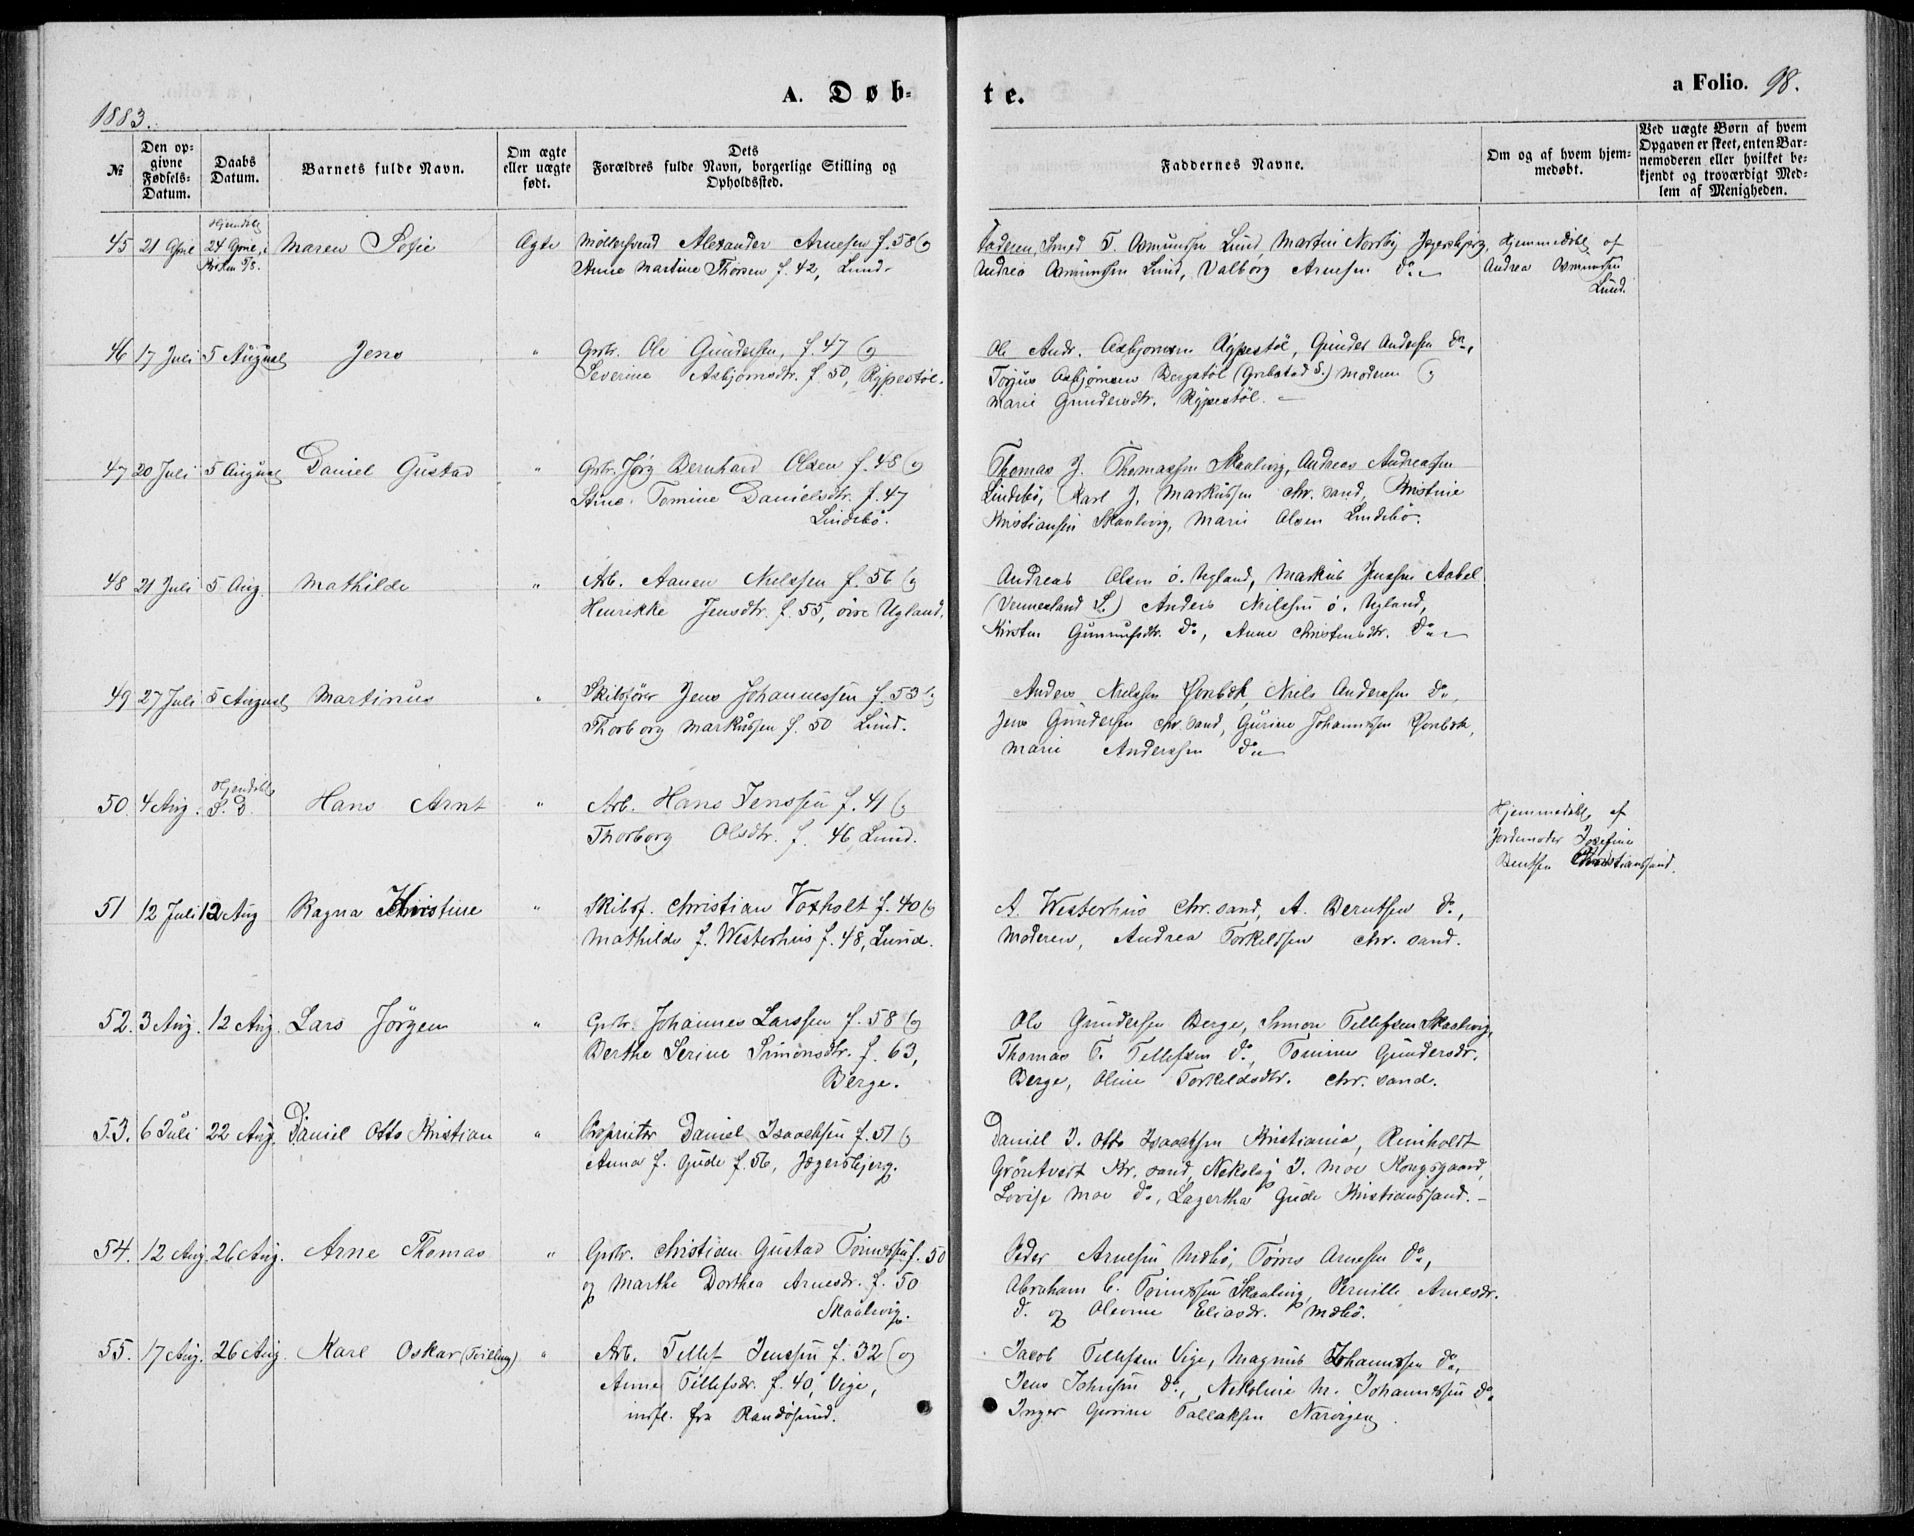 1883.
A. Døb-
te.
a Folio. 98.
№
Den op-
givne
Fødsels-
Datum.
Daabs
Datum.
Barnets fulde Navn.
Om ægte
eller uægte
født.
Dets
Forældres fulde Navn, borgerlige Stilling og
Opholdssted.
Faddernes Navne.
Om og af hvem hjem-
medøbt.
Ved uægte Børn af hvem
Opgaven er skeet, enten Bar-
nemoderen eller hvilket be-
kjendt og troværdigt Med-
lem af Menigheden.
45 21 Hjemdøbt 24 Kirken 5/8. Maren Sofie Ægte
Møllersvend Alexander Arnesen f. 58 og
Anne Martine Thorsen f. 42, Lund.
Faderen, Smed T. Osmundsen Lund, Martin Norby Jegersbjerg,
Andrea Osmundsen Lund, Valborg Arnesen do.
Hjemmedøbt af
Andrea Osmundsen
Lund.
46 17 Juli 5 August Jens "
Grbr. Ole Gundersen, f. 47 og
Severine Asbjørnsdtr. f. 50, Rypestøl.
Ole Andr. Asbjornsen Rypestøl, Gunder Andersen do.,
Torjus Asbjørnsen Bergstøl (Greipstad S.) Moderen og
Marie Gundersdtr. Rypestøl.
47 20 Juli 5 August Daniel Gustav "
Grbr. Jørg Bernhard Olsen f. 48 og
Stine Tomine Danielsdtr. f. 47
Lindebø.
Thomas J. Thomassen Skaalevig, Andreas Andreassen
Lindebø, Karl J. Markussen Chr.sand, Kristine
Kristiansen Skaalevig, Marie Olsen Lindebø.
48 21 Juli 5 Aug. Mathilde "
Arb. Aanen Nielssen f. 56 og
Henrikke Jensdtr. f. 55, øvre Ugland.
Andreas Olsen ø. Ugland, Markus Jenssen Aabel
(Vennesland S.) Anders Nielsen ø. Ugland,
Kirsten Gunnufsdtr. do., Anne Christensdtr. do.
49 27 Juli 5 August Martinus "
Skibsfører Jens Johannessen f. 53 og
Thorborg Markussen f. 50 Lund.
Anders Nielssen Kongsbæk, Niels Anderssen do.,
Jens Gundersen Chr.sand, Gurine Johannessen
Marie Anderssen do.
50. 4 Aug. Hjemdøbt S. D. Hans Arnt "
Arb. Hans Jenssen f. 41 og
Thorborg Olsdtr. f. 46, Lund.
Hjemmedøbt af
Jordemoder Josefine
Bentsen Christianssand.
51 12 Juli 12 Aug Ragna Kristine "
Skibsf. Christian Voxholt f. 40 og
Mathilde f. Westerhus f. 48, Lund.
A. Westerhus Chr.sand, A. Berntsen do.,
Moderen, Andrea Torkildsen Chr. sand.
52. 3 Aug. 12 Aug. Lars Jörgen "
Grbr. Johannes Larssen f. 58 og
Berthe Serine Simonsdtr. f. 63,
Berge.
Ole Gundersen Berge, Simon Tellefsen Skaalevig,
Thomas T. Tellefsen do., Tomine Gundersdr.
Berge, Oline Torkildsdtr. Chr. sand.
53. 6 Juli 22 Aug. Daniel Otto Kristian "
Proprietør Daniel Isaachsen f. 51 og
Anna f. Gude f. 56, Jægersbjerg.
Daniel J. Otto Isaachsen Kristiania, Reinholdt
Kr. sand, Nikolay J. Moe Kongsgaard,
Lovise Moe do., Lagertha Gude Kristianssand.
54. 12 Aug. 26 Aug. Arne Thomas "
Grbr. Christian Gustav Tørressen f. 50
og Marthe Dorthea Arnesdr. f. 50
Skaalevig.
Peder Arnesen Mebø, Tørres Arnesen do.,
Abraham C. Tørressen Skaalevig, Pernille Arnesdr.
do. og Olevine Eliasdr. Mebø.
55. 17 Aug. 26 Aug. Karl Oskar (Tvilling) "
Arb. Tellef Jenssen f. 32 og
Anne Tellefsdr. f. 40, Vige,
indfl. fra Randøsund.
Jacob Tellefsen Vige, Magnus Johannessen do.,
Jens Johnsen do., Nikoline M. Johannessen do.
Inger Gurine Tallaksen Narvigen.